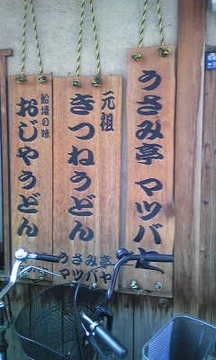 うさみ亭 マツバヤ
元祖
きつねうどん
うさみ亭
マツバヤ
船場の味
おじやうどん